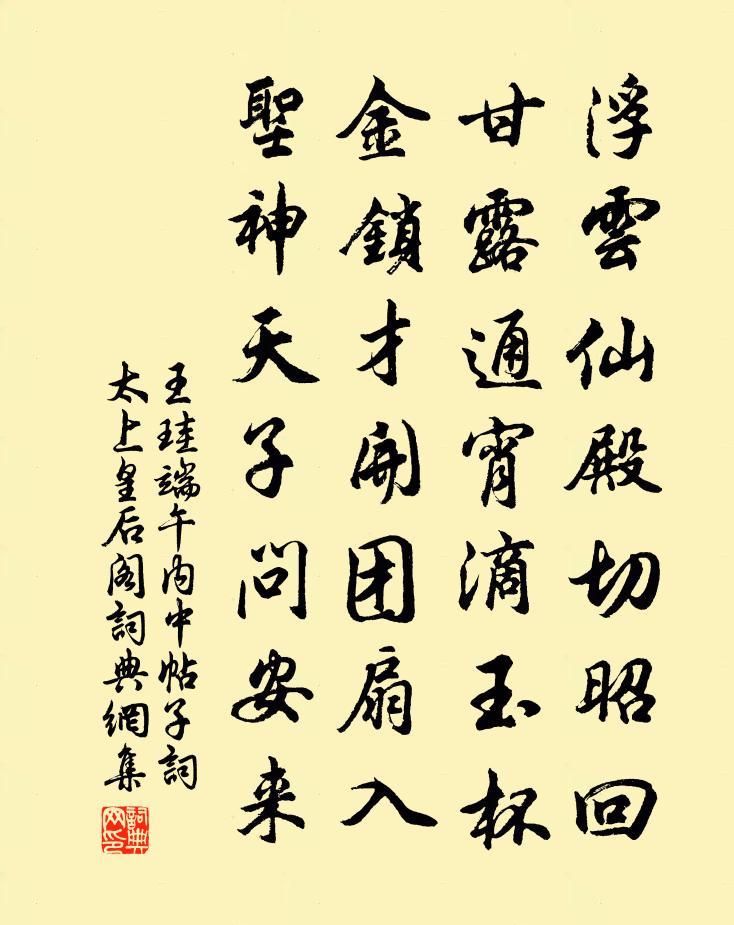 浮雲仙殿切昭回
甘露通宵滴玉杯
金鎖才開团扇入
聖神天子問安来
王珪端午内中帖子詞
太上皇后阁詞典網集
詞典
网印